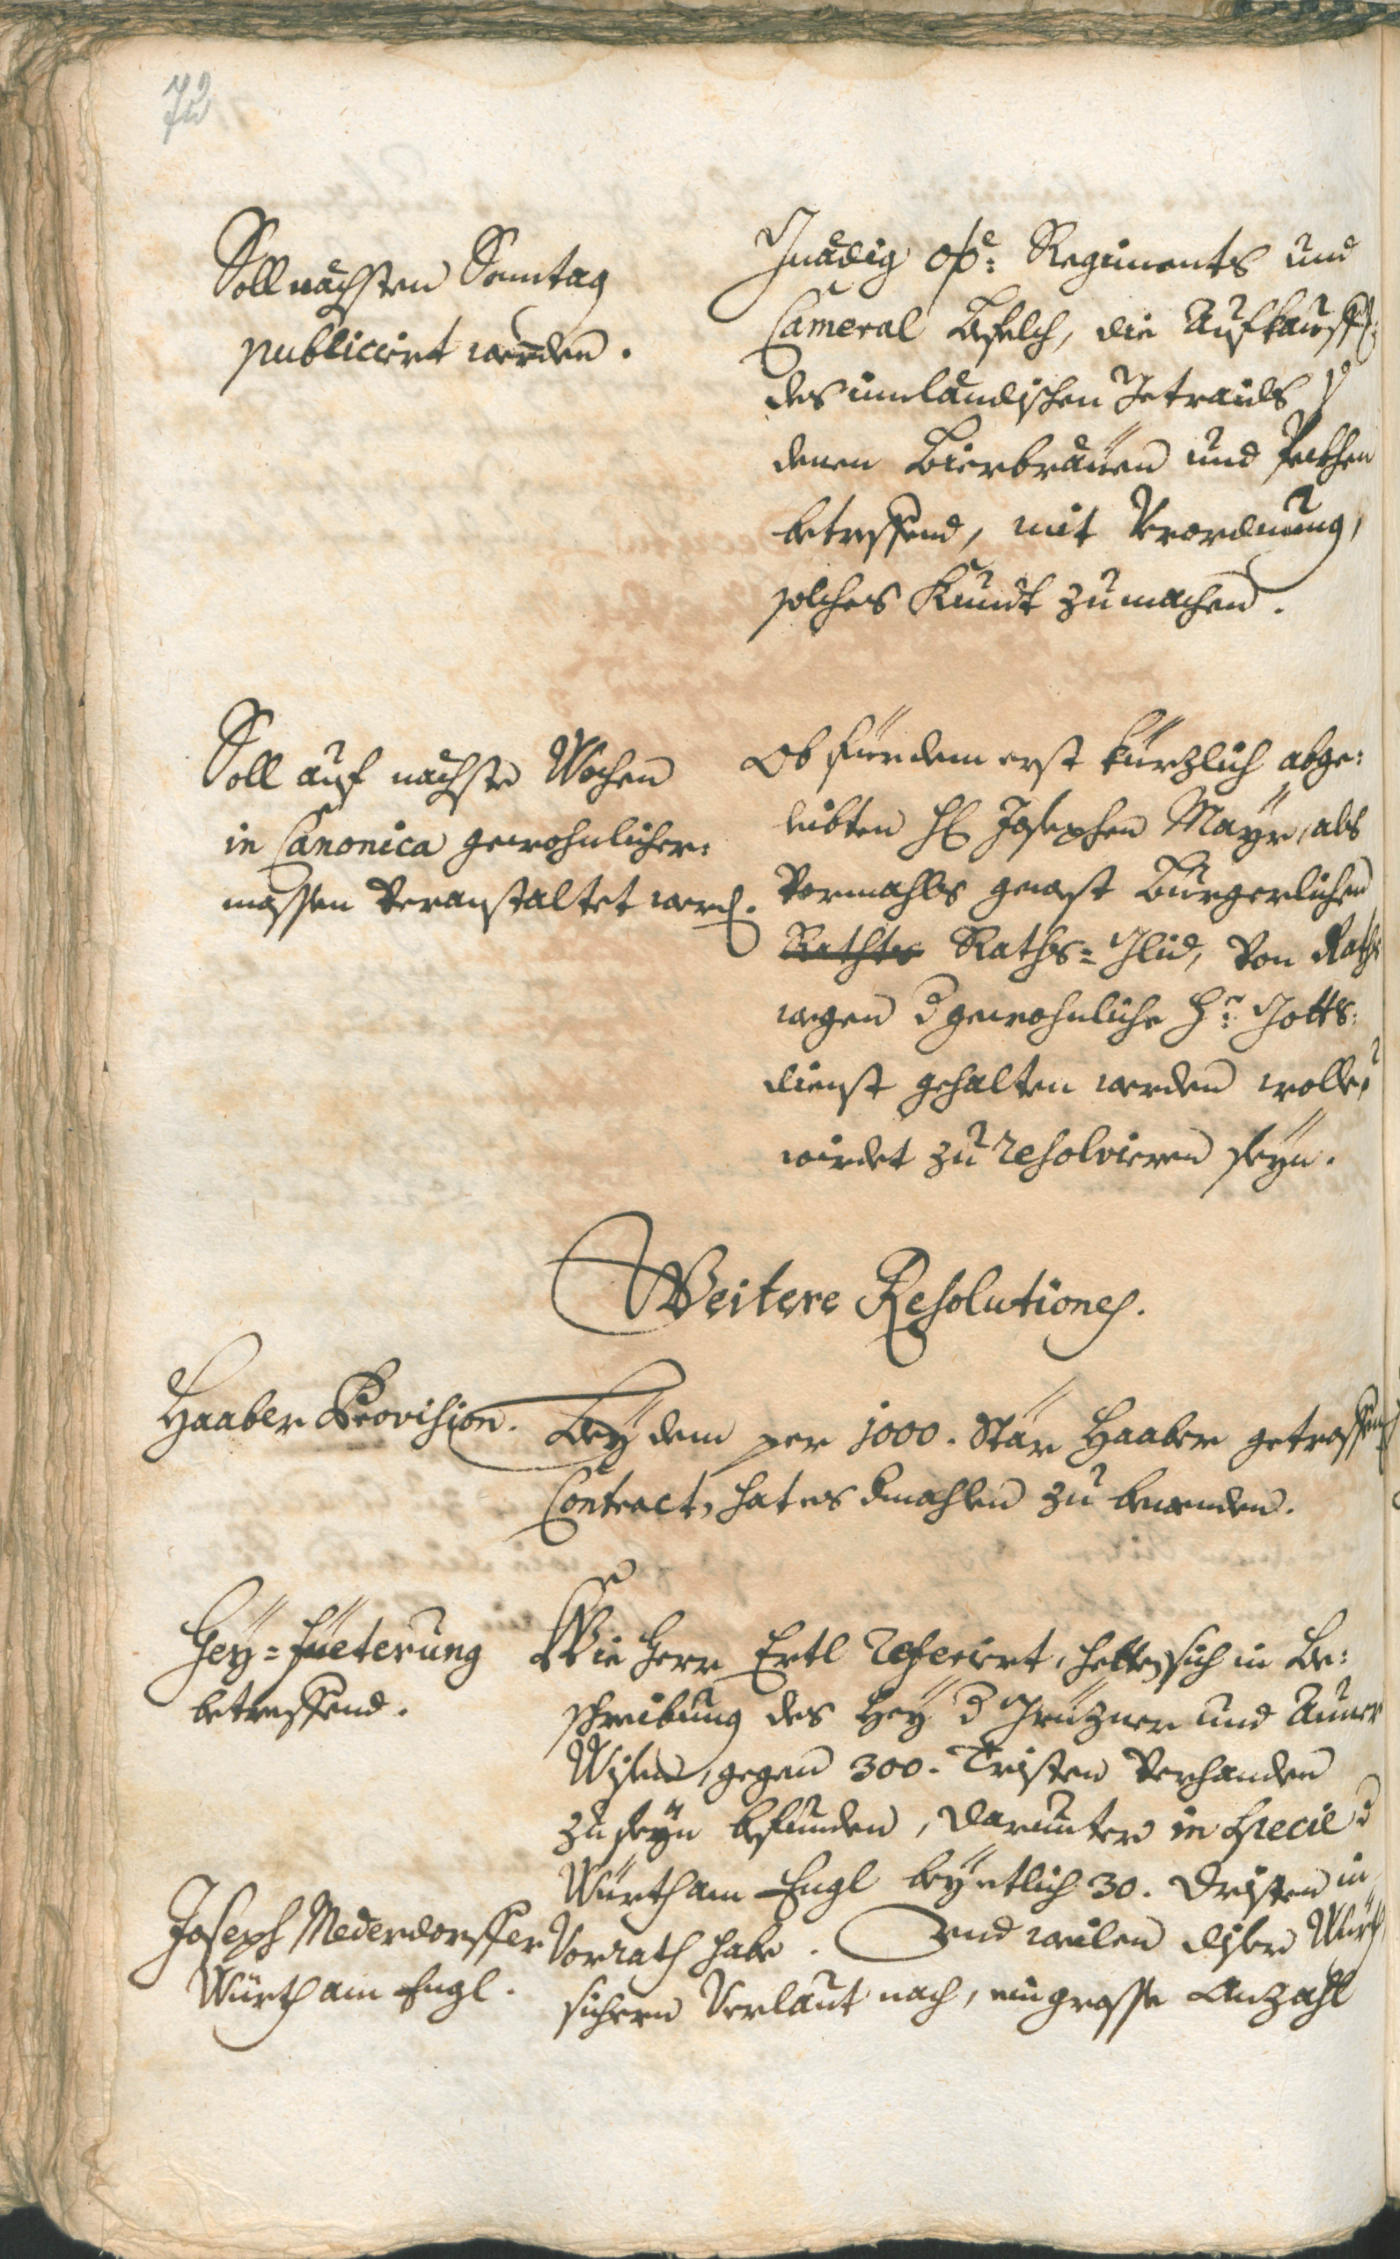 72
Soll nächsten Sonntag
publiciert werden.
Gnädig oö: Regiments und
Cameral Befelch, die Aufkauff:
des innländischen Getraids
denen Bierbräuen und Pekhen
betreffend, mit Verordnung,
solches Kundt zumachen.
Soll auf nächste Wochen
in Canonica gewohnlicher:
massen veranstaltet werd.
Ob für dem erst kürzlich abge:
leibten H: Josephen Mayr, als
Vormahls gewest Burgerlichen
Rathts Raths=Glid, von Raths
wegen d gewohnliche H: Gotts:
dienst gehalten werden wolle,
wirdet zu resolvieren seyn.
Weitere Resolutiones.
Haaber Provision.
Bey dem per 1000. Stär Haaber getroffenen
Contract, hat es dmahlen zu bewenden.
Hey=Füeterung
betreffend.
Wie Herr Ertl referiert, hette sich in Be:
schreibung des Hey d Grüzner und Auner
Wisen, gegen 300. Tristen verhanden
zu seyn befunden, darunter in specie d
Würth am Engl beyletlich 30. Dristen in
Vorrath habe. Und weilen diser Würth
sichern Verlaut nach, ein grosse Anzahl
Joseph Mederdorffer
Würth am Engl.